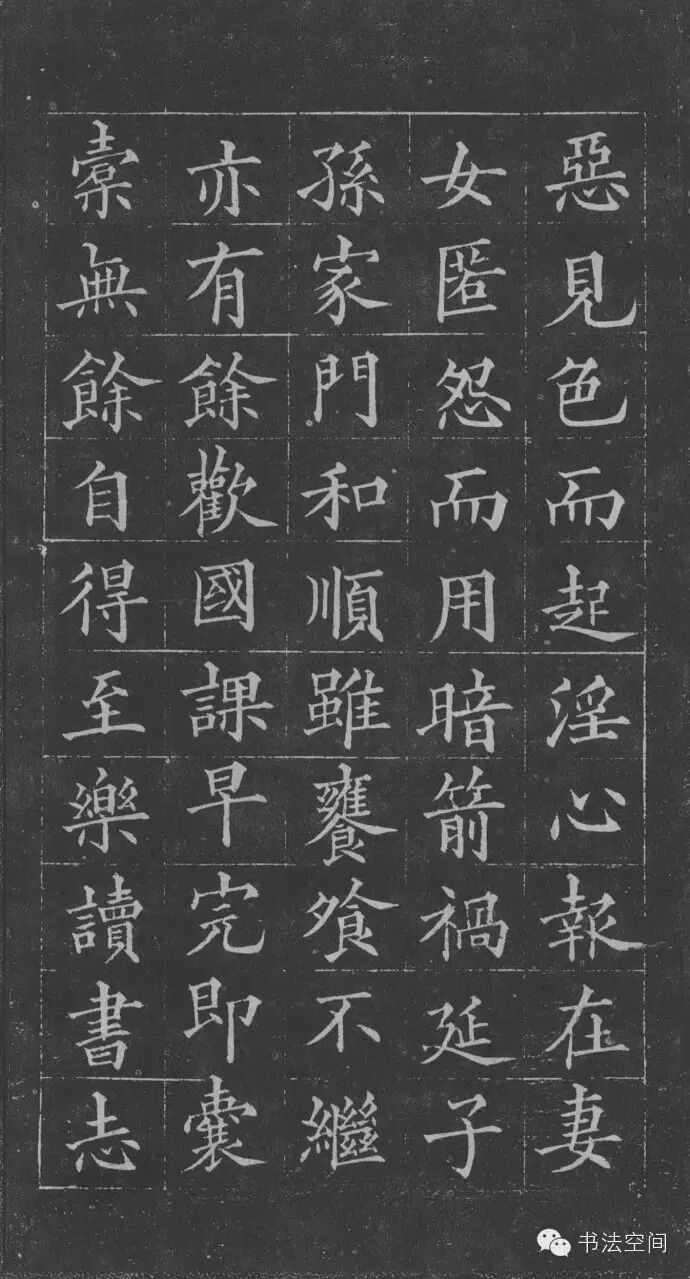 惡見色而起淫心報在妻
女匿怨而用暗箭禍延子
孫家門和順雖饔飧不繼
亦有餘歡國課早完即囊
橐無餘自得至樂讀書志
书法空间